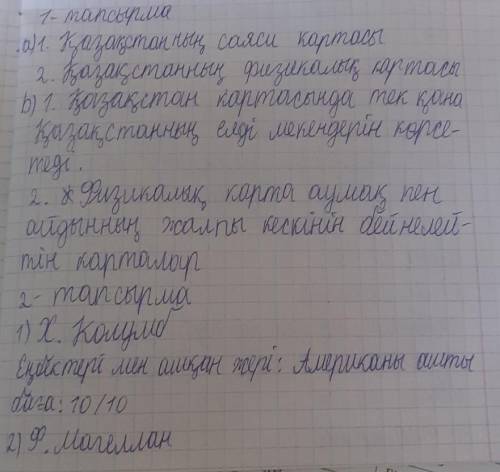 1-тапсырма
а) 1. Қазақстанның саяси картасы
2. Қазақстанның физикалық картасы
b) 1. Қазақстан картасында тек қана
Қазақстанның елді мекендерін көрсе-
теді.
2. Физикалық карта аумақ пен
айдынның жалпы кескінін бейнелей-
тін карталар
2-тапсырма
1) Х. Колумб
Еңбектері мен ашқан жері: Американы ашты
баға: 10/10
2) Ф. Магеллан